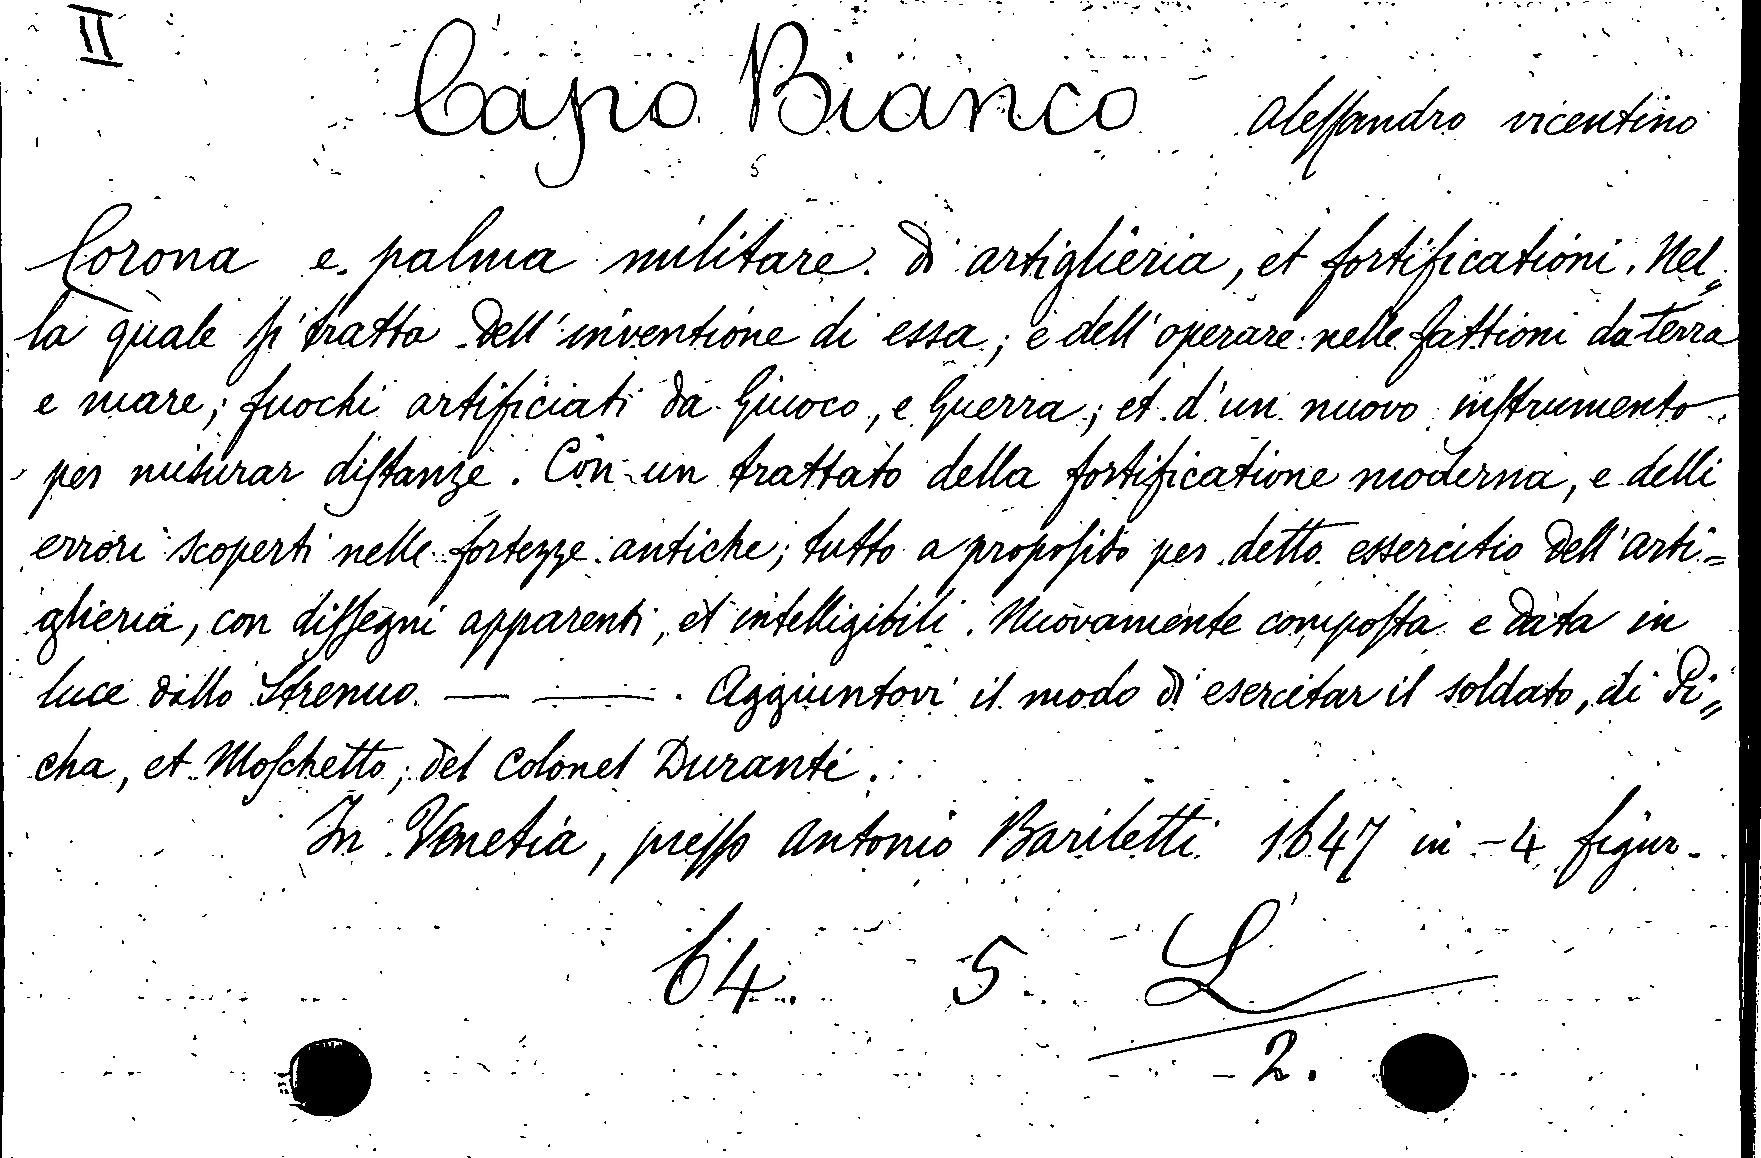 II
Capo Bianco Alessandro vicentino
Corona e palma militare di artiglieria, et fortificationi. Nel„
la quale si tratta dell'inventione di essa; e dell'operare nelle fattioni da terra
e mare; fuochi artificiati da Giuoco, e Guerra; et d'un nuovo instrumento
per misurar distanze. Con un trattato della fortificatione moderna, e delli
errori scoperti nelle fortezze antiche; tutto a proposito per detto essercitio dell'arti=
glieria, con dissegni apparenti, et intelligibili. Nuovamente composta e data in
luce dallo Strenuo — —. Aggiuntovi il modo di esercitar il soldato, di Pi„
cha, et Moschetto, del Colonel Duranti.
In Venetia, presso Antonio Bariletti 1647 in-4 figur.
64. 5. L
2.